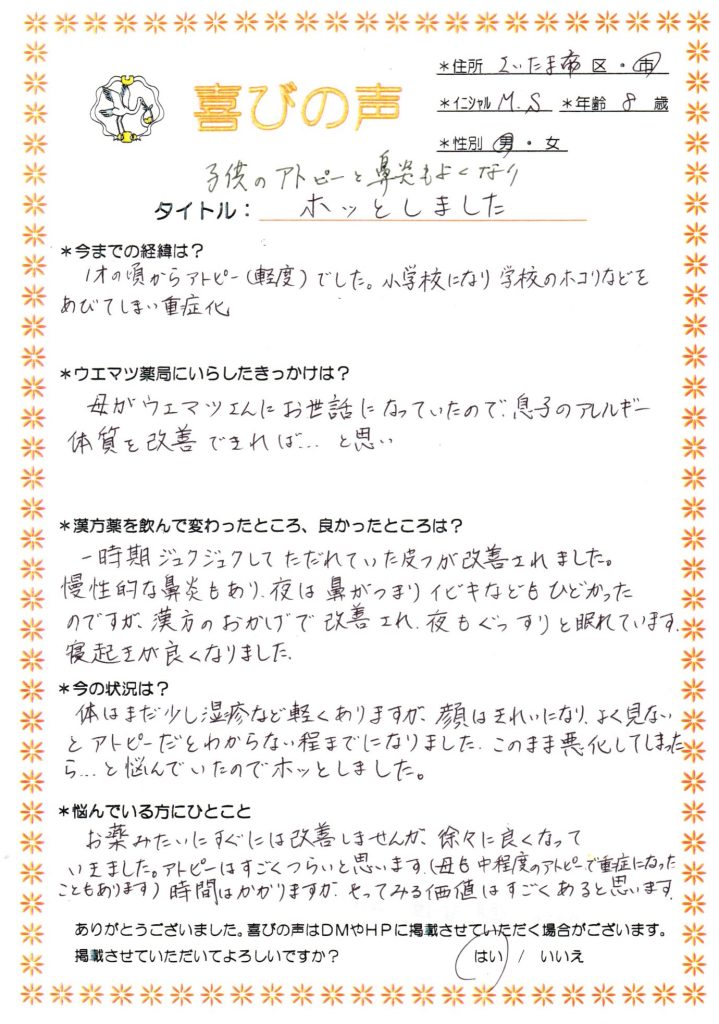 *住所 さいたま市 区・市
喜びの声
*イニシャル M.S *年齢 8 歳
*性別 男・女
子供のアトピーと鼻炎もよくなり
タイトル: ホッとしました
*今までの経緯は?
1才の頃からアトピー(軽度)でした。小学校になり学校のホコリなどを
あびてしまい重症化
*ウエマツ薬局にいらしたきっかけは?
母がウエマツさんにお世話になっていたので、息子のアレルギー
体質を改善できれば… と思い
*漢方薬を飲んで変わったところ、良かったところは?
一時期ジュクジュクしてただれていた皮フが改善されました。
慢性的な鼻炎もあり、夜は鼻がつまりイビキなどもひどかった
のですが、漢方のおかげで改善され、夜もぐっすりと眠れています。
寝起きが良くなりました。
*今の状況は?
体はまだ少し湿疹など軽くありますが、顔はきれいになり、よく見ない
とアトピーだとわからない程までになりました。このまま悪化してしまった
ら…と悩んでいたのでホッとしました。
*悩んでいる方にひとこと
お薬みたいにすぐには改善しませんが、徐々に良くなって
いきました。アトピーはすごくつらいと思います。(母も中程度のアトピーで重症になった
こともあります)時間はかかりますが、やってみる価値はすごくあると思います。
ありがとうございました。喜びの声はDMやHPに掲載させていただく場合がございます。
掲載させていただいてよろしいですか? はい / いいえ